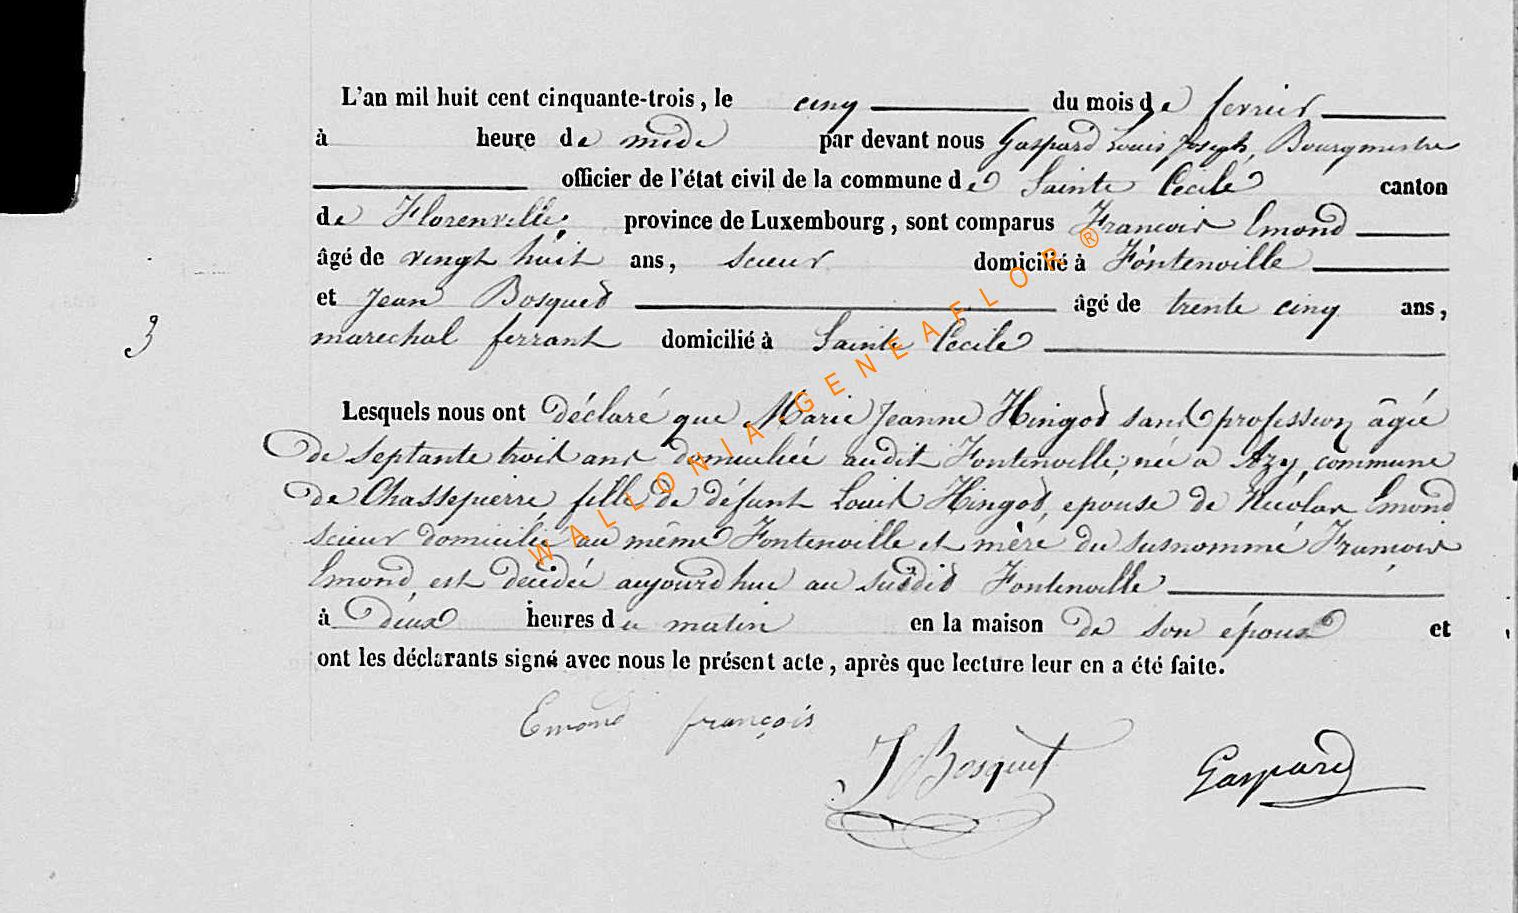 L'an mil huit cent cinquante-trois, le cinq du mois de fevrier
à heure de midi par devant nous Gaspard Louis Joseph, Bourgmestre
officier de l'état civil de la commune de Sainte Cecile canton
de Florenville, province de Luxembourg, sont comparus François Emond
âgé de vingt huit ans, scieur domicilié à Fontenoille
et Jean Bosquet âgé de trente cinq ans,
3
marechal ferrant domicilié à Sainte Cecile
Lesquels nous ont déclaré que Marie Jeanne Hingot sans profession âgée
de septante trois ans domiciliée audit Fontenoille, née a Azy, commune
de Chassepierre fille de défunt Louis Hingot, épouse de Nicolas Emond
scieur domicilié au même Fontenoille et mère du susnommé François
Emond, est decédée aujourd hui au susdit Fontenoille
à deux heures du matin en la maison de son époux et
ont les déclarants signé avec nous le présent acte, après que lecture leur en a été faite.
Emond françois
J Bosquet
Gaspard
WALLONIA-GENEAFLOR®